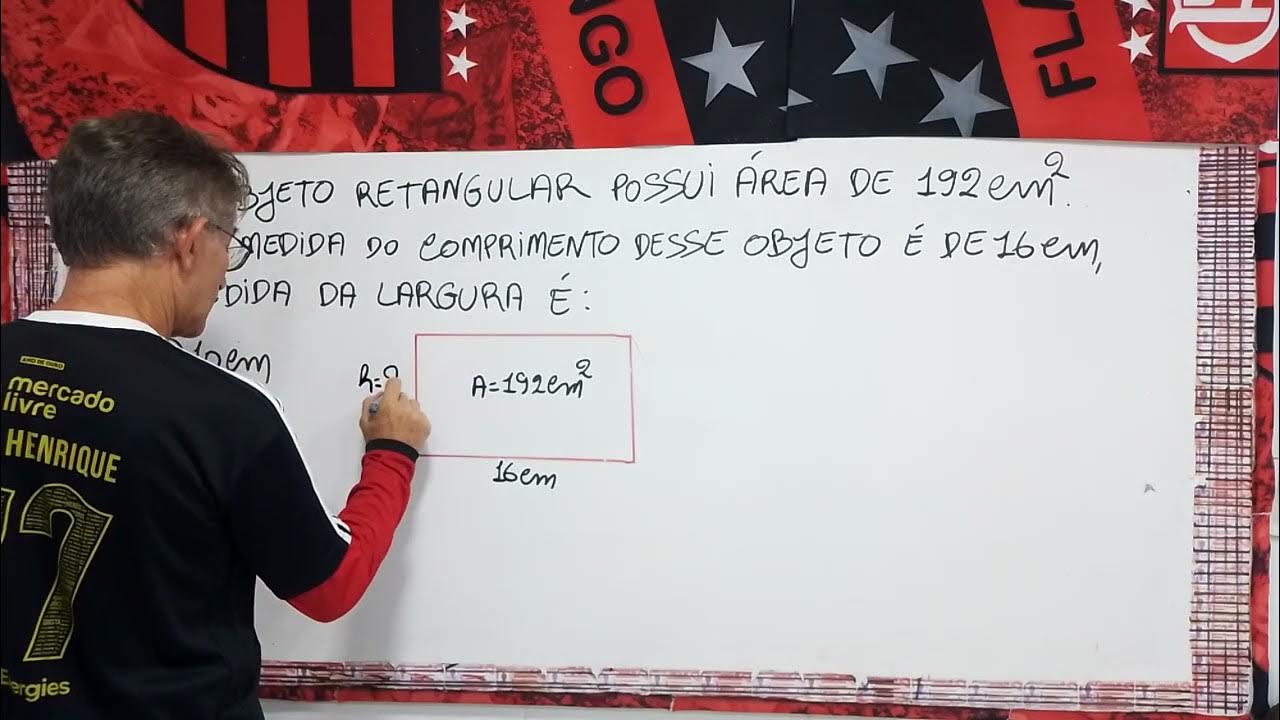 NGO
FLA
BJETO RETANGULAR POSSUI ÁREA DE 192cm².
MEDIDA DO COMPRIMENTO DESSE OBJETO É DE 16cm,
DIDA DA LARGURA É:
10cm
h=?
A=192cm²
16cm
ANO DE OURO
mercado
livre
HENRIQUE
7
Energies